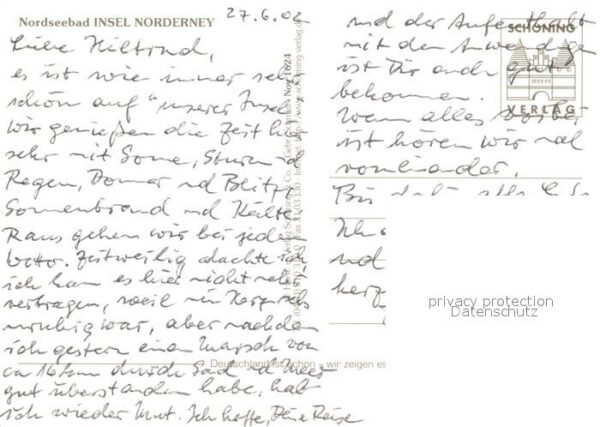 Nordseebad INSEL NORDERNEY
27.6.02
Liebe Hiltrud,
es ist wie immer sehr
schön auf "unserer Insel
Wir genießen die Zeit hier
sehr mit Sonne, Sturm und
Regen, Donner und Blitz,
Sonnenbrand und Kälte.
Raus gehen wir bei jedem
Wetter. Zeitweilig dachte ich
ich kann es hier nicht mehr
vertragen, weil mein Herz sehr
unruhig war, aber nachdem
ich gestern einen Marsch von
ca 16 km durch Sand und Meer
gut überstanden habe, hab
ich wieder Mut. Ich hoffe, Deine Reise
und der Aufenthalt
mit den
ist Dir auch gut
bekommen.
Wenn alles vorbei
ist hören wir mal
voneinander.
Bis
Ich
und
herz
SCHÖNING
VERLAG
Deutschland ist schön - wir zeigen es
privacy protection
Datenschutz